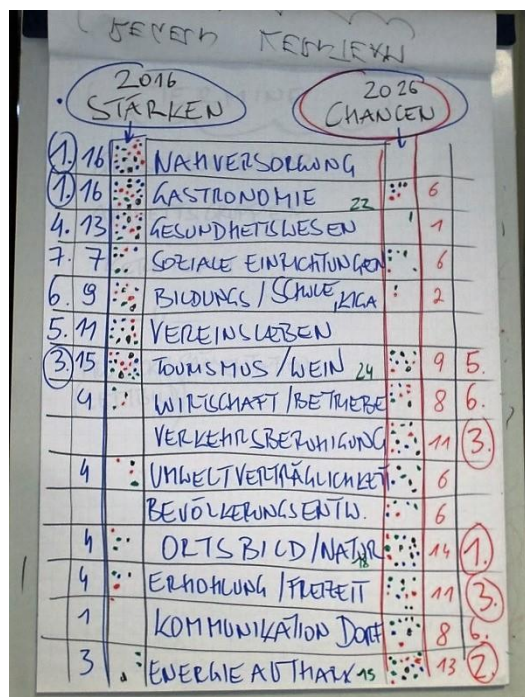 2016 2026
STÄRKEN CHANCEN
1. 16 NAHVERSORGUNG
1. 16 GASTRONOMIE 22 6
4. 13 GESUNDHEITSWESEN 1
7. 7 SOZIALE EINRICHTUNGEN 6
6. 9 BILDUNGS / SCHULE, KIGA 2
5. 11 VEREINSLEBEN
3. 15 TOURISMUS / WEIN 24 9 5.
4 WIRTSCHAFT / BETRIEBE 8 6.
VERKEHRSBERUHIGUNG 11 3.
4 UMWELTVERTRÄGLICHKEIT 6
BEVÖLKERUNGSENTW. 6
4 ORTSBILD / NATUR 18 14 1.
4 ERHOHLUNG / FREIZEIT 11 3.
1 KOMMUNIKATION DORF 8 6.
3 ENERGIE AUTHARK 15 13 2.